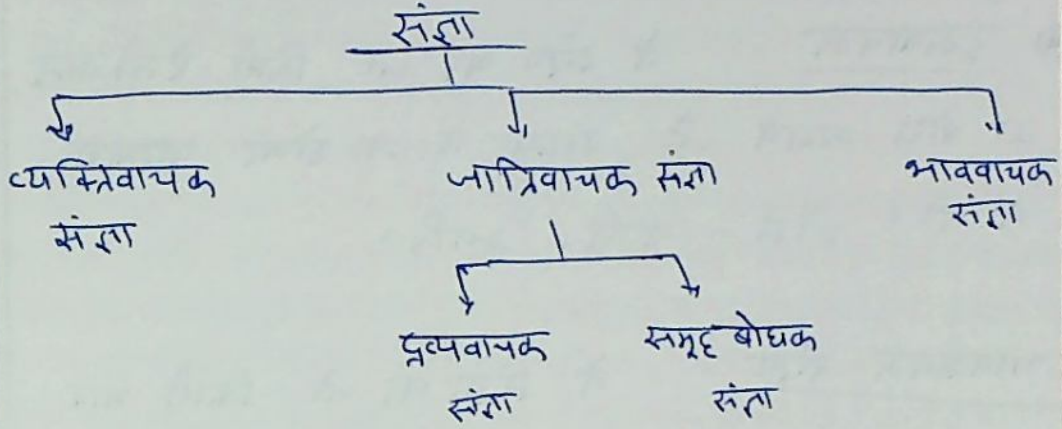 संज्ञा
व्यक्तिवाचक संज्ञा
जातिवाचक संज्ञा
भाववाचक संज्ञा
द्रव्यवाचक संज्ञा
समूह बोधक संज्ञा